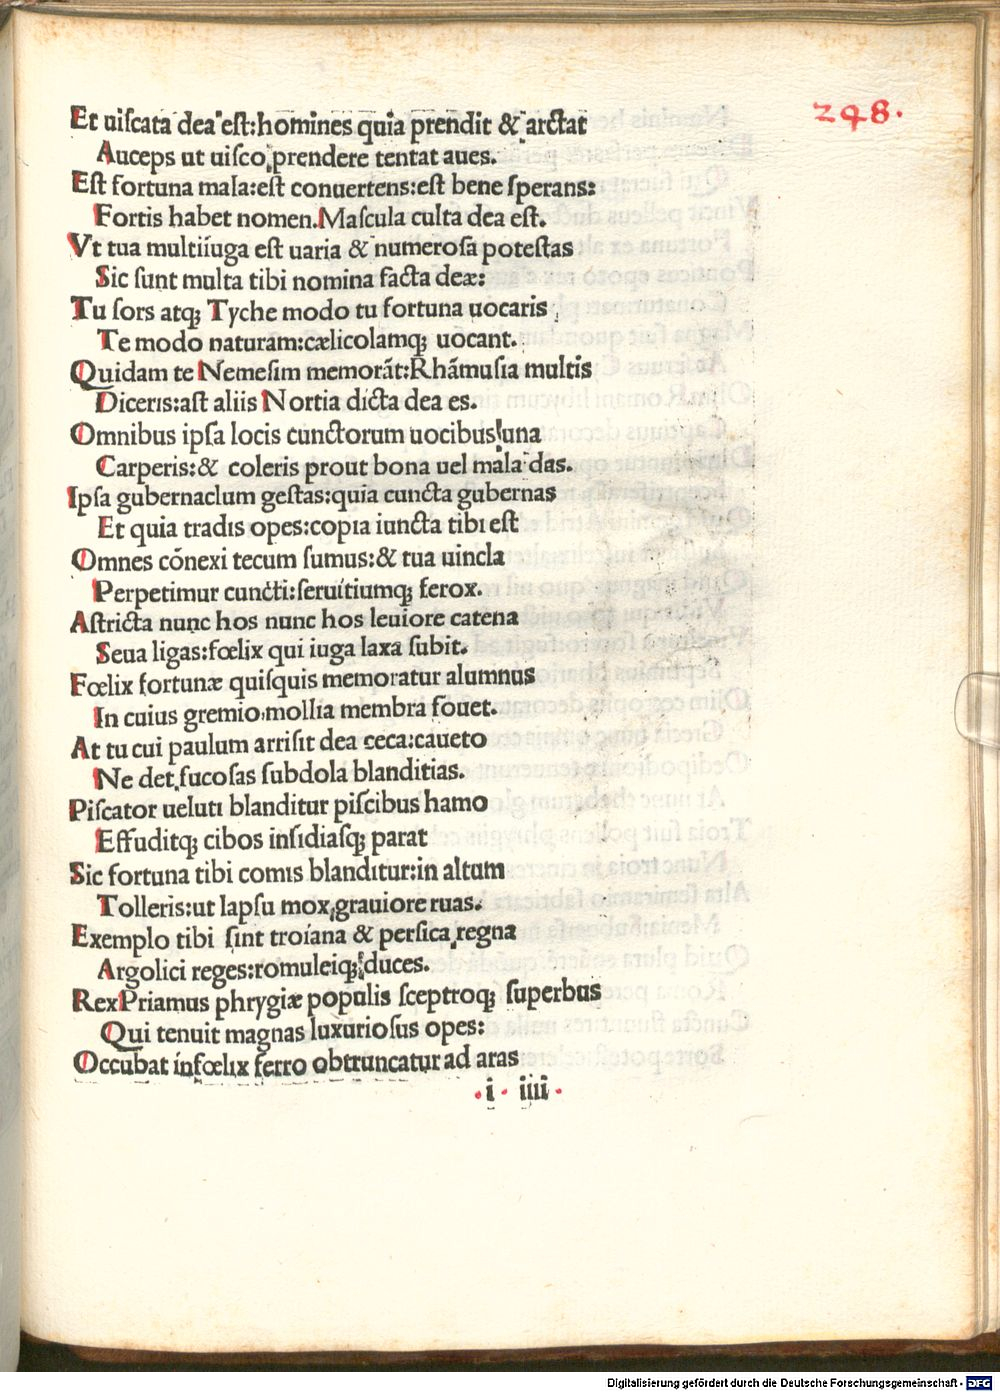 248.
Et uiſcata dea eſt:homines quia prendit & arctat
Auceps ut uiſco prendere tentat aues.
Eſt fortuna mala:eſt conuertens:eſt bene ſperans:
Fortis habet nomen.Maſcula culta dea eſt.
Vt tua multiiuga eſt uaria & numeroſa poteſtas
Sic ſunt multa tibi nomina facta deæ:
Tu ſors atqꝫ Tyche modo tu fortuna uocaris
Te modo naturam:cælicolamqꝫ uocant.
Quidam te Nemeſim memorāt:Rhāmuſia multis
Diceris:aſt aliis Nortia dicta dea es.
Omnibus ipſa locis cunctorum uocibus una
Carperis:& coleris prout bona uel mala das.
Ipſa gubernaclum geſtas:quia cuncta gubernas
Et quia tradis opes:copia iuncta tibi eſt
Omnes cōnexi tecum ſumus:& tua uincla
Perpetimur cuncti:ſeruitiumqꝫ ferox.
Aſtricta nunc hos nunc hos leuiore catena
Seua ligas:fœlix qui iuga laxa ſubit.
Fœlix fortunæ quiſquis memoratur alumnus
In cuius gremio mollia membra fouet.
At tu cui paulum arriſit dea ceca:caueto
Ne det fucoſas ſubdola blanditias.
Piſcator ueluti blanditur piſcibus hamo
Effuditqꝫ cibos inſidiaſqꝫ parat
Sic fortuna tibi comis blanditur:in altum
Tolleris:ut lapſu mox grauiore ruas.
Exemplo tibi ſint troiana & perſica regna
Argolici reges:romuleiqꝫ duces.
Rex Priamus phrygiæ populis ſceptroqꝫ ſuperbus
Qui tenuit magnas luxurioſus opes:
Occubat infœlix ferro obtruncatur ad aras
.i. iiii.
Digitalisierung gefördert durch die Deutsche Forschungsgemeinschaft - DFG